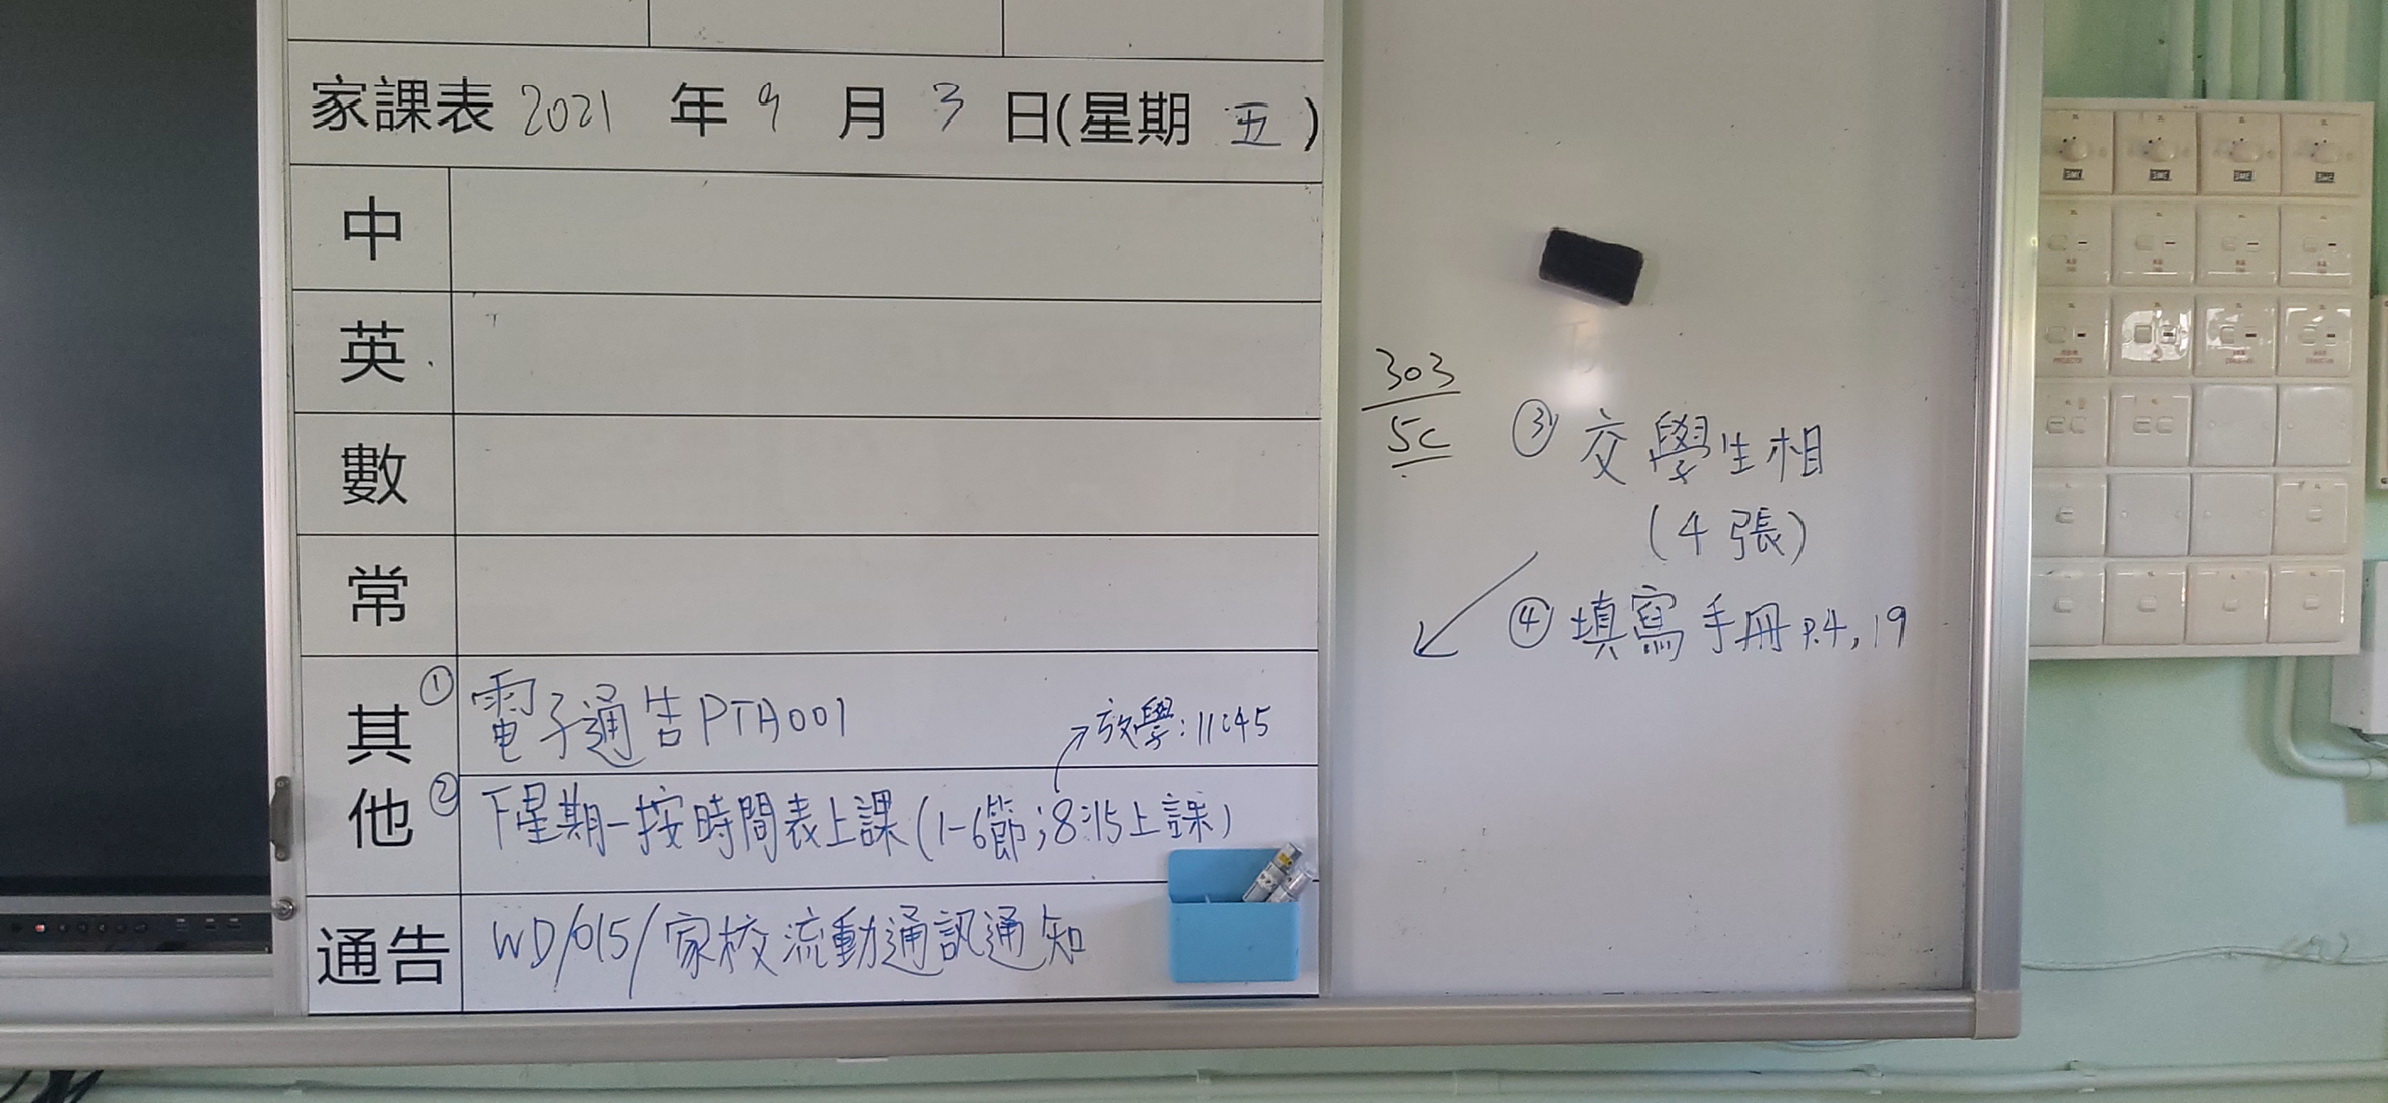 家課表 2021 年 9 月 3 日(星期 五)
中
英
數
常
其他
① 電子通告PTA001
放學:11:45
② 下星期一按時間表上課(1-6節;8:15上課)
通告 WD/015/家校流動通訊通知
303
5C
③ 交學生相
(4張)
④ 填寫手冊p.4,19